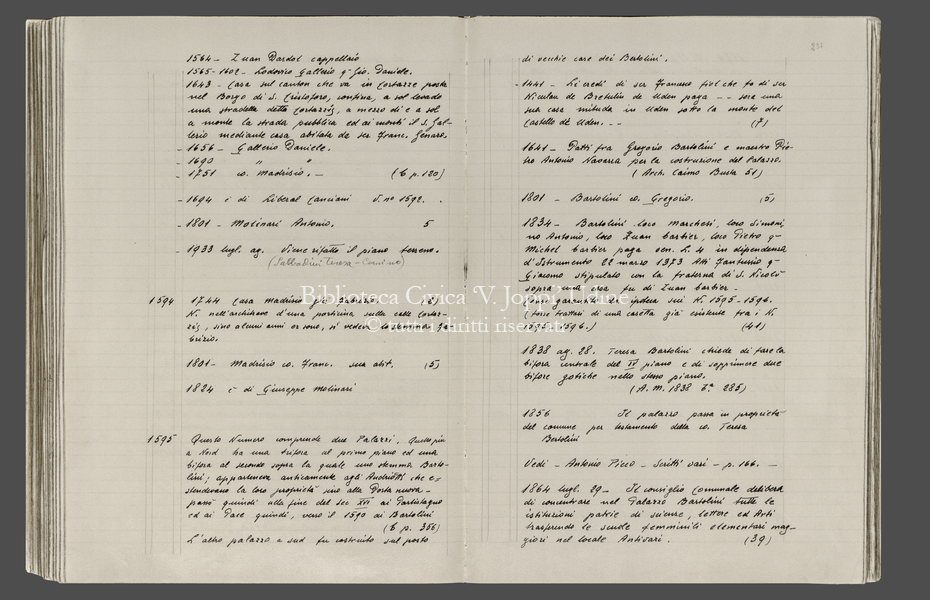 1564 - Zuan Dardol cappellaio
1565-1602 - Lodovico Gallerio q- Gio. Daniele.
1643 - Casa sul canton che va in Cortazze posta
nel Borgo di S. Cristoforo, confina, a sol levado
una stradella detta Cortazzis, a mezzo dì e a sol
a monte la strada pubblica ed ai monti il S. Gal-
lerio mediante casa abitata de ser Franc. Jenaro.
- 1656 - Gallerio Daniele.
- 1690 " "
- 1751 co. Madrisio. - (C p. 120)
- 1694 è di Liberal Canciani V. n° 1592.
- 1801 - Molinari Antonio. 5
- 1933 lugl. ag. Viene rifatto il piano terreno.
(Sabbadini Teresa -
1594 1744 Casa Madrisio
N. nell'archivare d'una porticina sulla calle Cortaz-
zis, sino alcuni anni or sono, si vedeva
brizio.
1801 - Madrisio co. Franc. sua abit. (5)
1824 è di Giuseppe Molinari
1595 Questo Numero comprende due Palazzi. Quello più
a Nord ha una trifora al primo piano ed una
bifora al secondo sopra la quale uno stemma Barto-
lini; apparteneva anticamente agli Andriotti che e-
stendevano la loro proprietà sino alla Porta nuova -
passò quindi alla fine del sec XVI ai Partistagno
ed ai Pace quindi, verso il 1590 ai Bartolini
(C p. 356)
L'altro palazzo a sud fu costruito sul posto
di vecchie case dei Bertolini.
- 1441 - Li eredi di ser Francesco fiol che fo di ser
Nicolau de Bertulin de Uden paga -- sora una
sua casa mituda in Uden sotto lo monte del
Castello de Uden. -- (7)
1641 - Patti fra Gregorio Bartolini e maestro Pie-
tro Antonio Navarra per la costruzione del Palazzo.
(Arch. Caimo Busta 51)
1801 - Bartolini co. Gregorio. (5)
1834 - Bartolini loco Marchesi, loco Simoni,
no Antonio, loco Zuan barbier, loco Pietro q-
Michel barbier paga ven. L. 4 in dipendenza
d'Istrumento 22 marzo 1373 Atti Fantussio q-
Giacomo stipulato con la fraterna di S. Nicolò
sopra una casa fu di Zuan barbier -
sui N. 1595-1596.
(forse trattasi di una casetta già esistente fra i N.
1595-1596.) (41)
1838 ag. 28. Teresa Bartolini chiede di fare la
bifora centrale del II° piano e di sopprimere due
bifore gotiche nello stesso piano.
(A. M. 1838 285)
1856 Il palazzo passa in proprietà
del comune per testamento della co. Teresa
Bertolini
Vedi - Antonio Picco - Scritti vari - p. 166. -
1864 lugl. 29 - Il consiglio comunale delibera
di concentrare nel Palazzo Bartolini tutte le
istituzioni patrie di scienze, lettere ed Arti
trasferendo le scuole femminili elementari mag-
giori nel locale Antivari. (39)
Biblioteca Civica 'V. Joppi' Udine
© tutti i diritti riservati